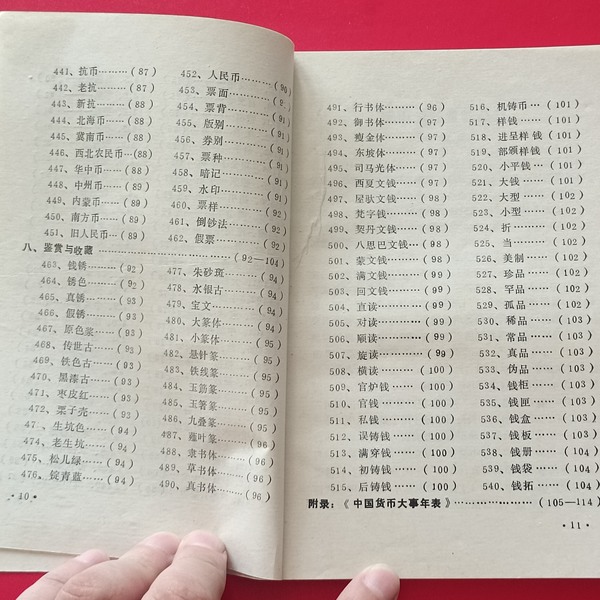 441、抗币………(87)
442、老抗………(87)
443、新抗………(88)
444、北海币……(88)
445、冀南币……(88)
446、西北农民币…(88)
447、华中币……(88)
448、中州币……(89)
449、内蒙币……(89)
450、南方币……(89)
451、旧人民币…(89)
452、人民币………(90)
453、票面…………
454、票背…………(91)
455、版别…………(91)
456、券别…………(91)
457、票种…………(91)
458、暗记…………(91)
459、水印…………(91)
460、票样…………(92)
461、倒钞法………(92)
462、假票…………(92)
八、鉴赏与收藏……………………………(92—104)
463、钱锈………(92)
464、锈色………(92)
465、真锈………(93)
466、假锈………(93)
467、原色浆……(93)
468、传世古……(93)
469、铁色古……(93)
470、黑漆古……(93)
471、枣皮红……(93)
472、栗子壳……(93)
47 、生坑色……(94)
474、老生坑……(94)
475、松儿绿……(94)
476、锭青蓝……(94)
477、朱砂斑………(94)
478、水银古………(94)
479、宝文…………(94)
480、大篆体………(94)
481、小篆体………(95)
482、悬针篆………(95)
483、铁线篆………(95)
484、玉筯篆………(95)
485、玉箸篆………(95)
486、九叠篆………(95)
487、薤叶篆………(96)
488、隶书体………(96)
489、草书体………(96)
490、真书体………(96)
·10·
491、行书体………(96)
492、御书体………(97)
493、瘦金体………(97)
494、东坡体………(97)
495、司马光体……(97)
496、西夏文钱……(97)
497、屋驮文钱……(98)
498、梵字钱………(98)
499、契丹文钱……(98)
500、八思巴文钱…(98)
501、蒙文钱………(98)
502、满文钱………(99)
503、回文钱………(99)
504、直读…………(99)
505、对读…………(99)
506、顺读…………(99)
507、旋读…………(99)
508、横读…………(100)
509、官炉钱………(100)
510、官钱…………(100)
511、私钱…………(100)
512、误铸钱………(100)
513、满穿钱………(100)
514、初铸钱………(100)
515、后铸钱………(100)
516、机铸币…(101)
517、样钱……(101)
518、进呈样钱(101)
519、部颁样钱(101)
520、小平钱…(101)
521、大钱……(101)
522、大型……(102)
523、小型……(102)
524、折………(102)
525、当………(102)
526、美制……(102)
527、珍品……(102)
528、罕品……(102)
529、孤品……(102)
530、稀品……(103)
531、常品……(103)
532、真品……(103)
533、伪品……(103)
534、钱柜……(103)
535、钱匣……(103)
536、钱盒……(103)
537、钱板……(103)
538、钱册……(104)
539、钱袋……(104)
540、钱拓……(104)
附录：《中国货币大事年表》……………………(105—114)
·11·